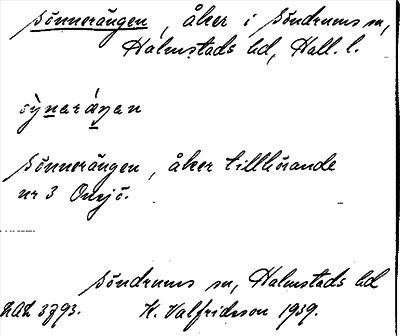 Sönnerängen, åker i Söndrums sn,
Halmstads hd, Hall. l.
sỳnaräŋan
Sönnerängen, åker tillhörande
nr 3 Onsjö.
Söndrums sn, Halmstads hd
LAL 3793. K. Valfridsson 1939.